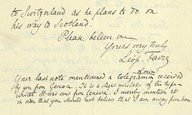 to Switzerland as he plans to do on
his way to Scotland.
Please believe me
Yours very truly
Leop. Favre
Your last note mentioned a telegram received
by you from Geneva. It is a mistake of the type
writer. It was not from Geneva. I merely mention it
in order that you should not believe that I am away from home